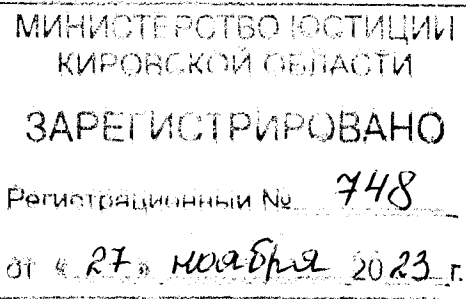 МИНИСТЕРСТВО ЮСТИЦИИ
КИРОВСКОЙ ОБЛАСТИ
ЗАРЕГИСТРИРОВАНО
Регистрационный № 748
от « 27 » ноября 2023 г.